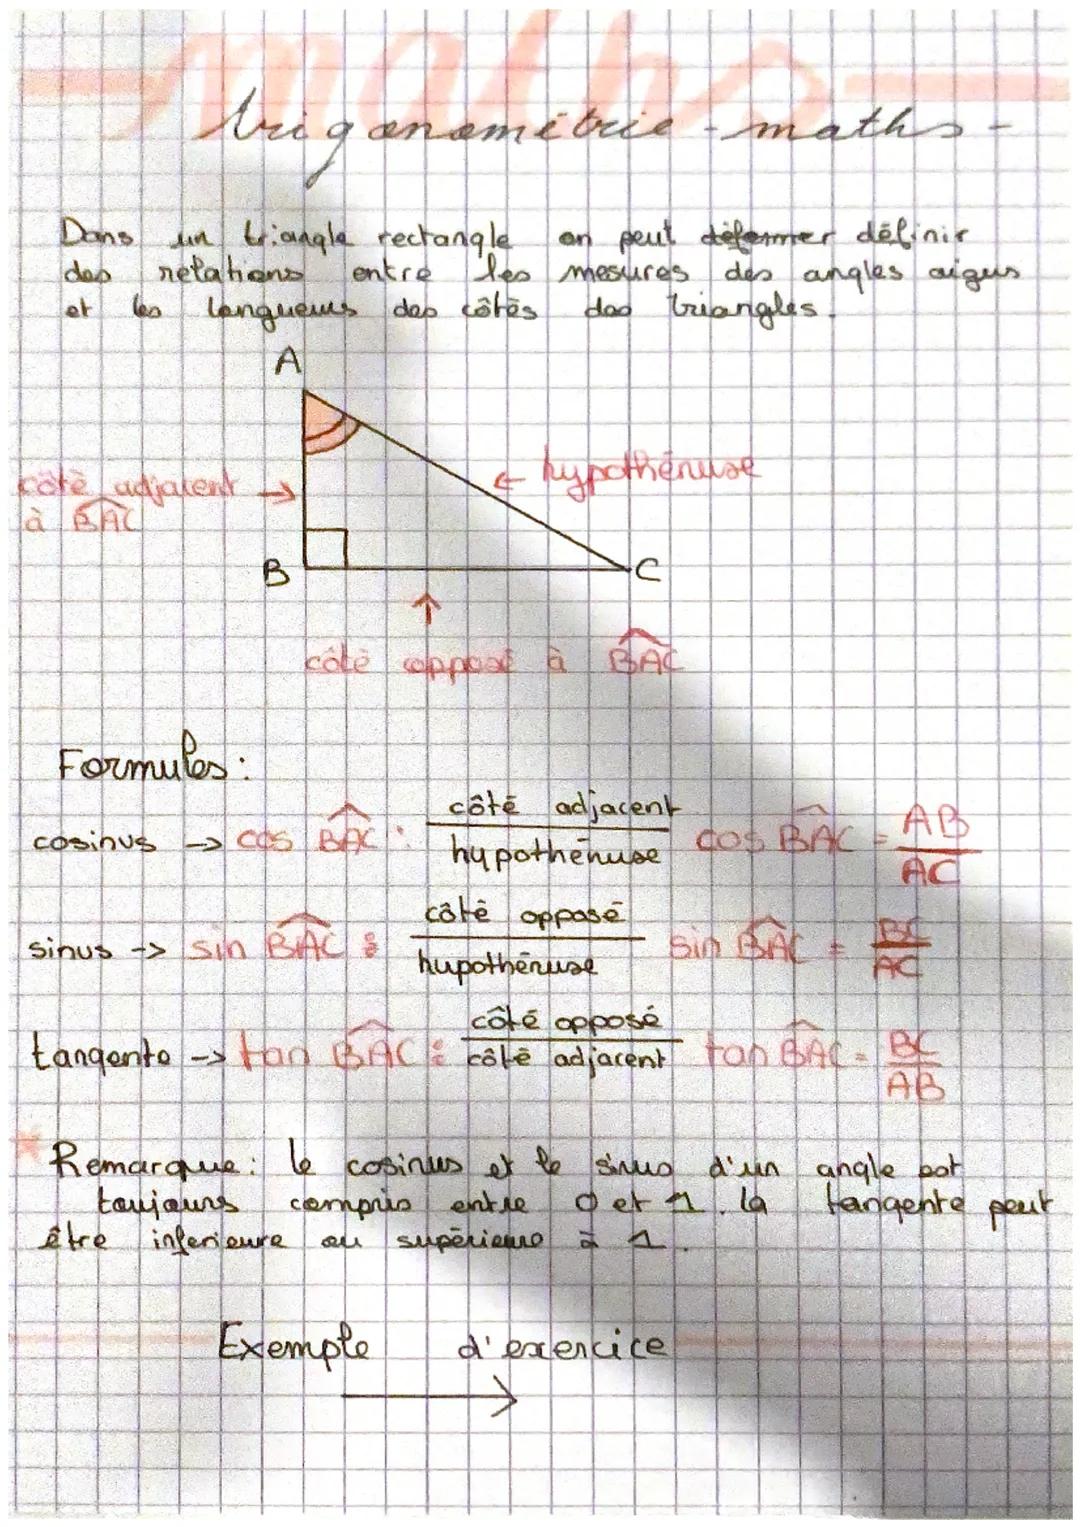 maths
trigonométrie - maths -
Dans un triangle rectangle on peut déformer définir
des relations entre les mesures des angles aigus
et les longueurs des côtés des triangles.
A
côté adjacent →
à BAC
← hypothénuse
B
C
↑
côté opposé à BAC
Formules :
cosinus → cos BAC : côté adjacent / hypothénuse cos BAC = AB / AC
sinus -> sin BAC : côté opposé / hupothénuse sin BAC = BC / AC
tangente -> tan BAC : côté opposé / côté adjacent tan BAC = BC / AB
* Remarque : le cosinus et le sinus d'un angle est
toujours compris entre 0 et 1. la tangente peut
être inferieure ou supérieure à 1.
Exemple d'exercice
→